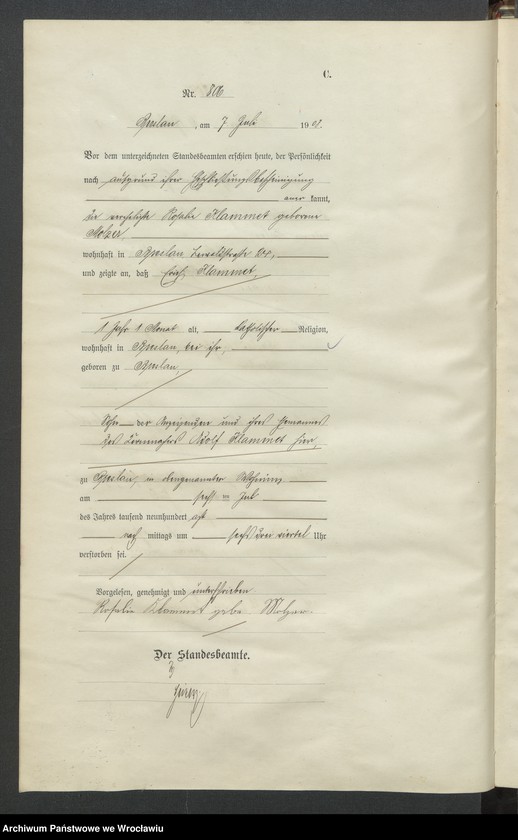 C.
Nr. 806
Breslau, am 7 Juli 1908.
Vor dem unterzeichneten Standesbeamten erschien heute, der Persönlichkeit
nach aufgrund ihrer
aner kannt,
die verehelichte Rosalie Klammet geborene
Molzer,
wohnhaft in Breslau
und zeigte an, daß Erich Klammet,
1 Jahr 1 Monat alt, katholischer Religion,
wohnhaft in Breslau, bei ihr,
geboren zu Breslau,
Sohn der Anzeigenden und ihres Ehemannes
des Adolf Klammet hier,
zu Breslau, in obengenannter Wohnung
am sechsten Juli
des Jahres tausend neunhundert acht
nach mittags um sechs drei viertel Uhr
verstorben sei.
Vorgelesen, genehmigt und unterschrieben
Rosalie Klammet gebo Molzer.
Der Standesbeamte.
Archiwum Państwowe we Wrocławiu